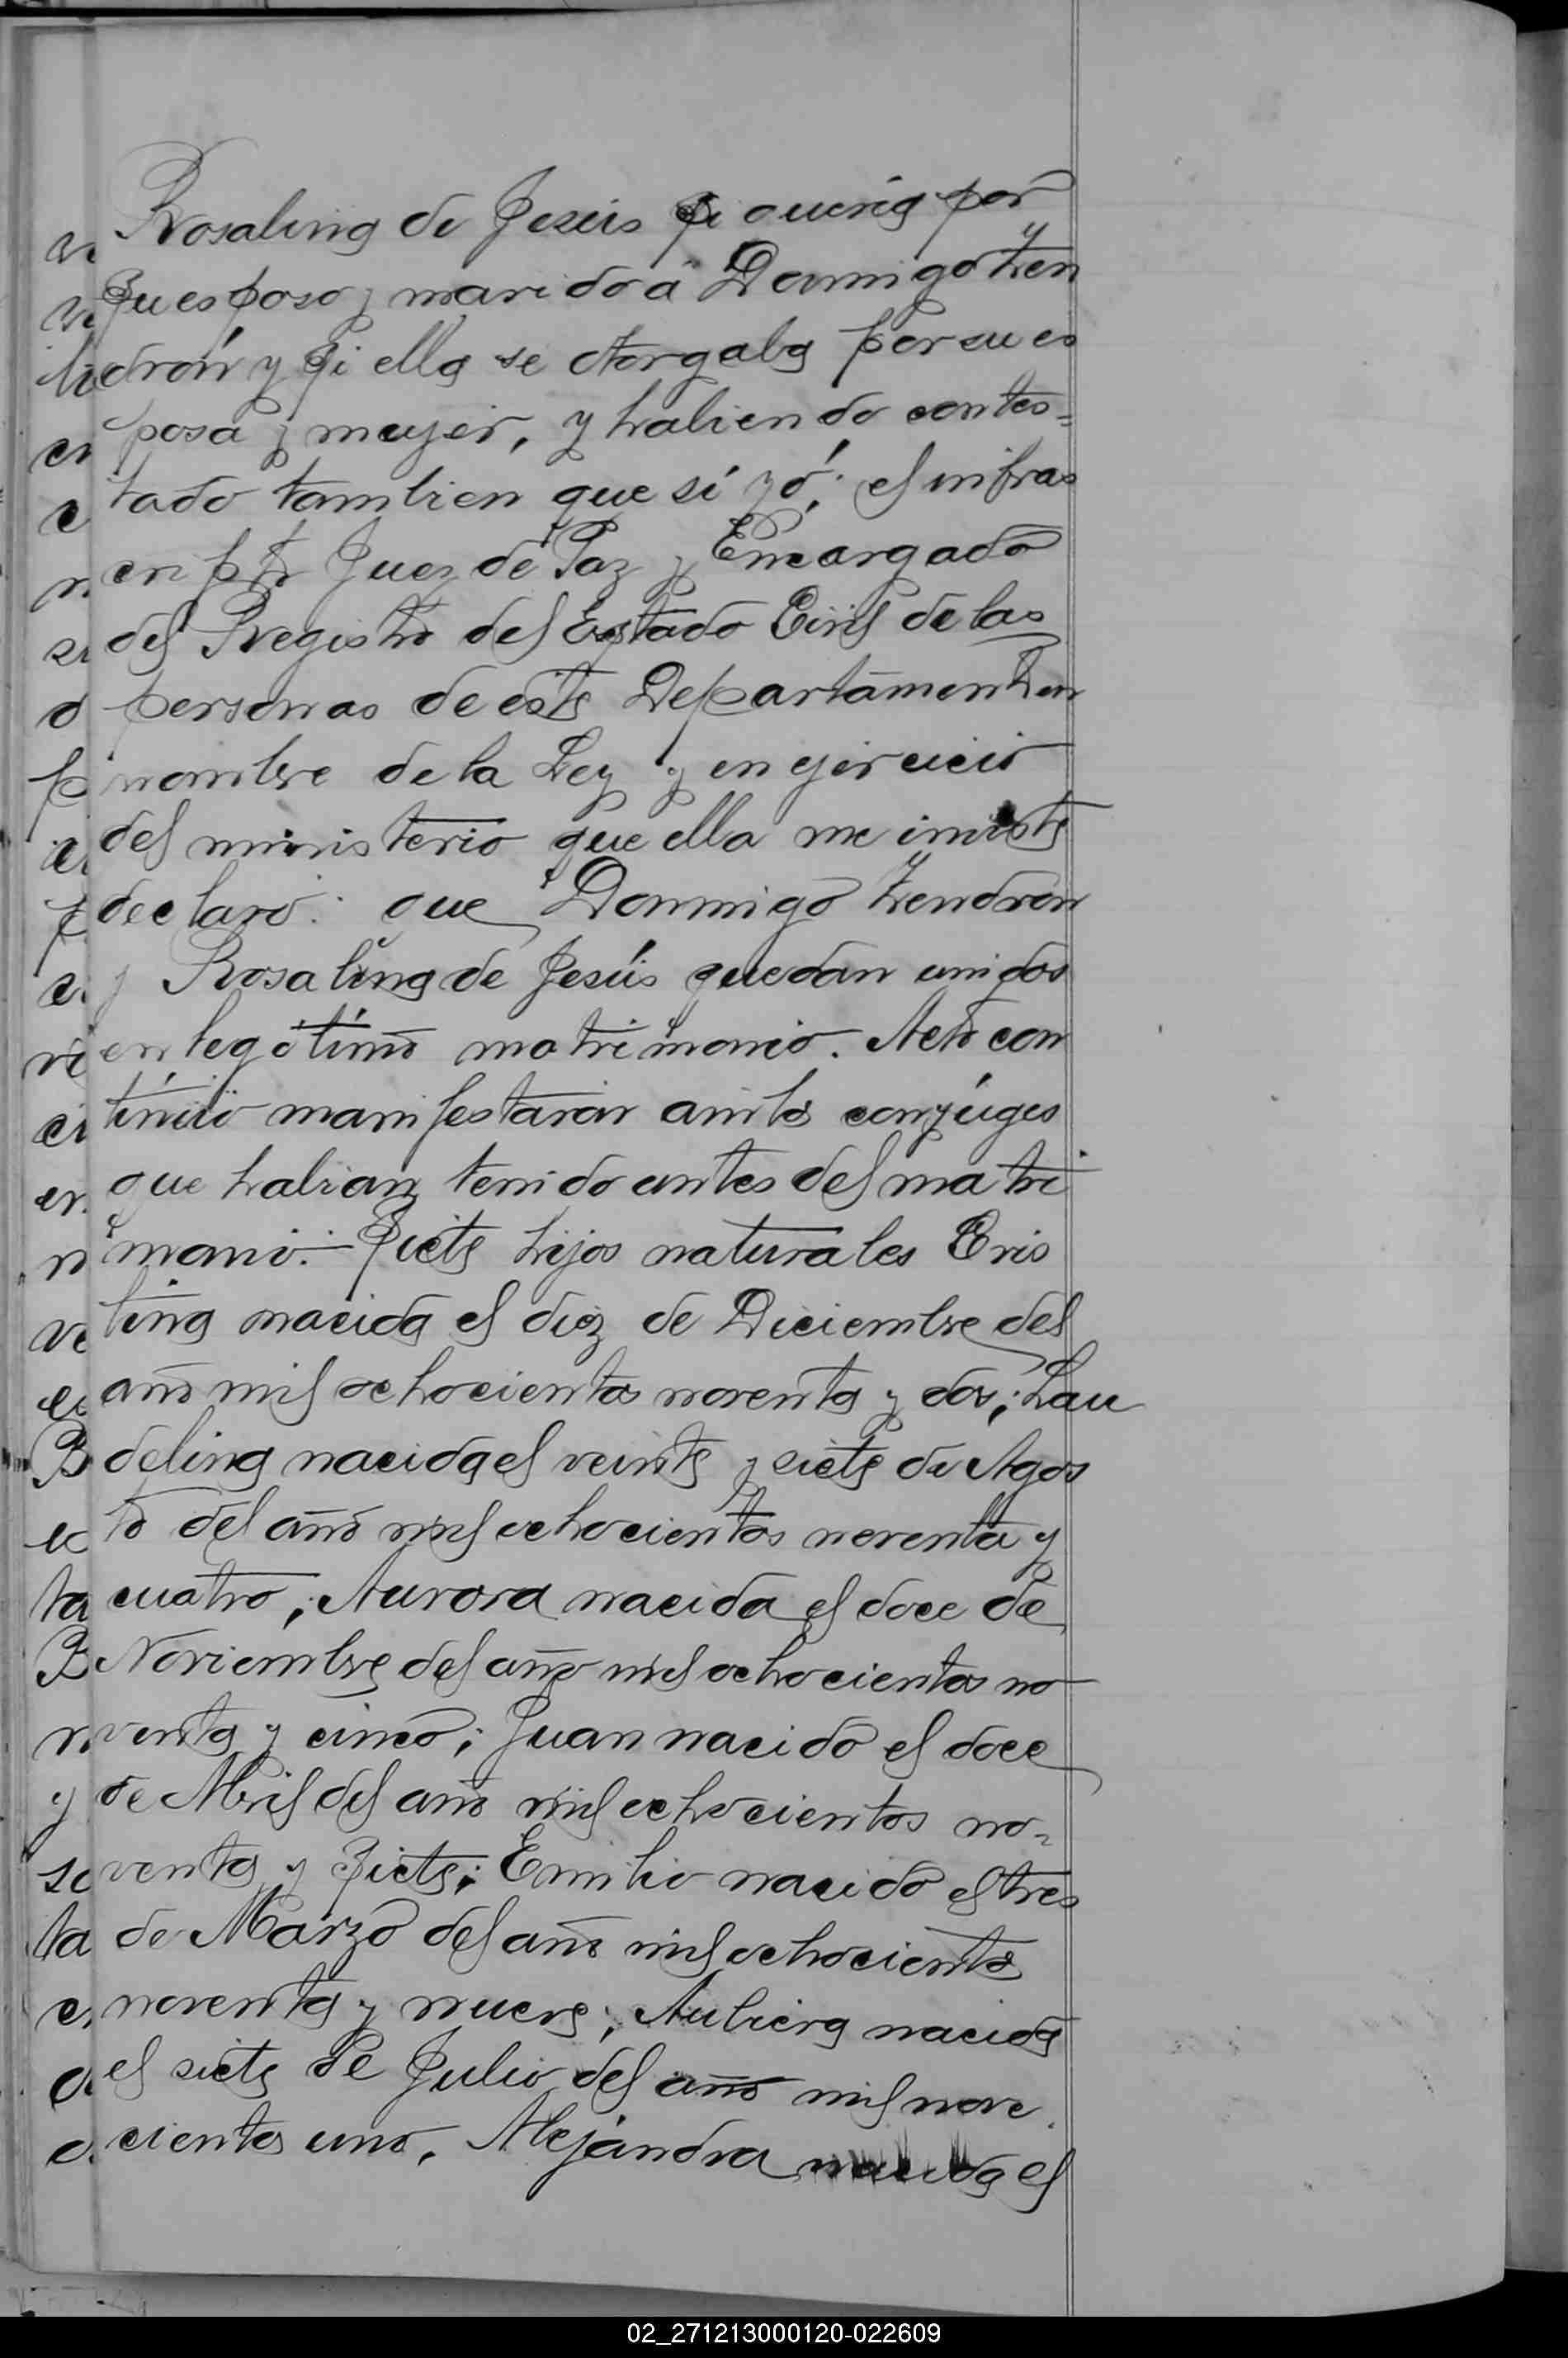 Rosalina de Jesús si queria por
su esposo y marido á Domingo Zen
drón y si ella se otorgaba por su es
posa y mujer, y habiendo contes=
tado tambien que sí yó; el infras
cripto Juez de Paz y Encargado
del Registro del Estado Civil de las
personas de este Departamento en
nombre de la Ley y en ejercicio
del ministerio que ella me inviste
declaro: que Domingo Zendron
y Rosalina de Jesús quedan unidos
en legítimo matrimonio. Acto con
tinúo manifestaron ambos conyúges
que habian tenido antes del matri
monio: Siete hijos naturales Cris
tina nacida el diez de Diciembre del
año mil ochocientos noventa y dos; Lau
delina nacida el veinte y siete de Agos
to del año mil ochocientos noventa y
cuatro; Aurora nacida el doce de
Noviembre del año mil ochocientos no
venta y cinco; Juan nacido el doce
de Abril del año mil ochocientos no=
venta y Siete; Emilio nacido el tres
de Marzo del año mil ochocientos
noventa y nueve; nacida
el siete de Julio del año mil nove
cientos uno, Alejándra nacida el
02_271213000120-022609